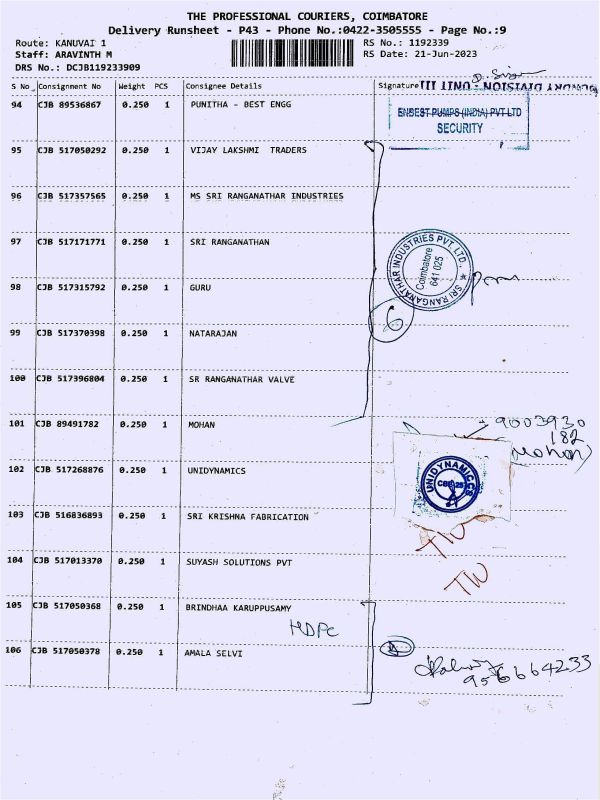 THE PROFESSIONAL COURIERS, COIMBATORE
Delivery Runsheet - P43 - Phone No.:0422-3505555 - Page No.:9
Route: KANUVAI 1 RS No.: 1192339
Staff: ARAVINTH M RS Date: 21-Jun-2023
DRS No.: DCJB119233909
S No Consignment No Weight PCS Consignee Details Signature
DIVISION - UNIT III
94 CJB 89536867 0.250 1 PUNITHA - BEST ENGG
ENBEST PUMPS (INDIA) PVT LTD
SECURITY
95 CJB 517050292 0.250 1 VIJAY LAKSHMI TRADERS
96 CJB 517357565 0.250 1 MS SRI RANGANATHAR INDUSTRIES
97 CJB 517171771 0.250 1 SRI RANGANATHAN
SRI RANGANATHAR INDUSTRIES PVT. LTD.
Coimbatore
641 025
98 CJB 517315792 0.250 1 GURU
6
99 CJB 517370398 0.250 1 NATARAJAN
100 CJB 517396804 0.250 1 SR RANGANATHAR VALVE
101 CJB 89491782 0.250 1 MOHAN
9003930
182
(Mohan)
102 CJB 517268876 0.250 1 UNIDYNAMICS
UNIDYNAMICS
103 CJB 516836893 0.250 1 SRI KRISHNA FABRICATION
TW
104 CJB 517013370 0.250 1 SUYASH SOLUTIONS PVT
TW
105 CJB 517050368 0.250 1 BRINDHAA KARUPPUSAMY
HDFC
106 CJB 517050378 0.250 1 AMALA SELVI
9566664233